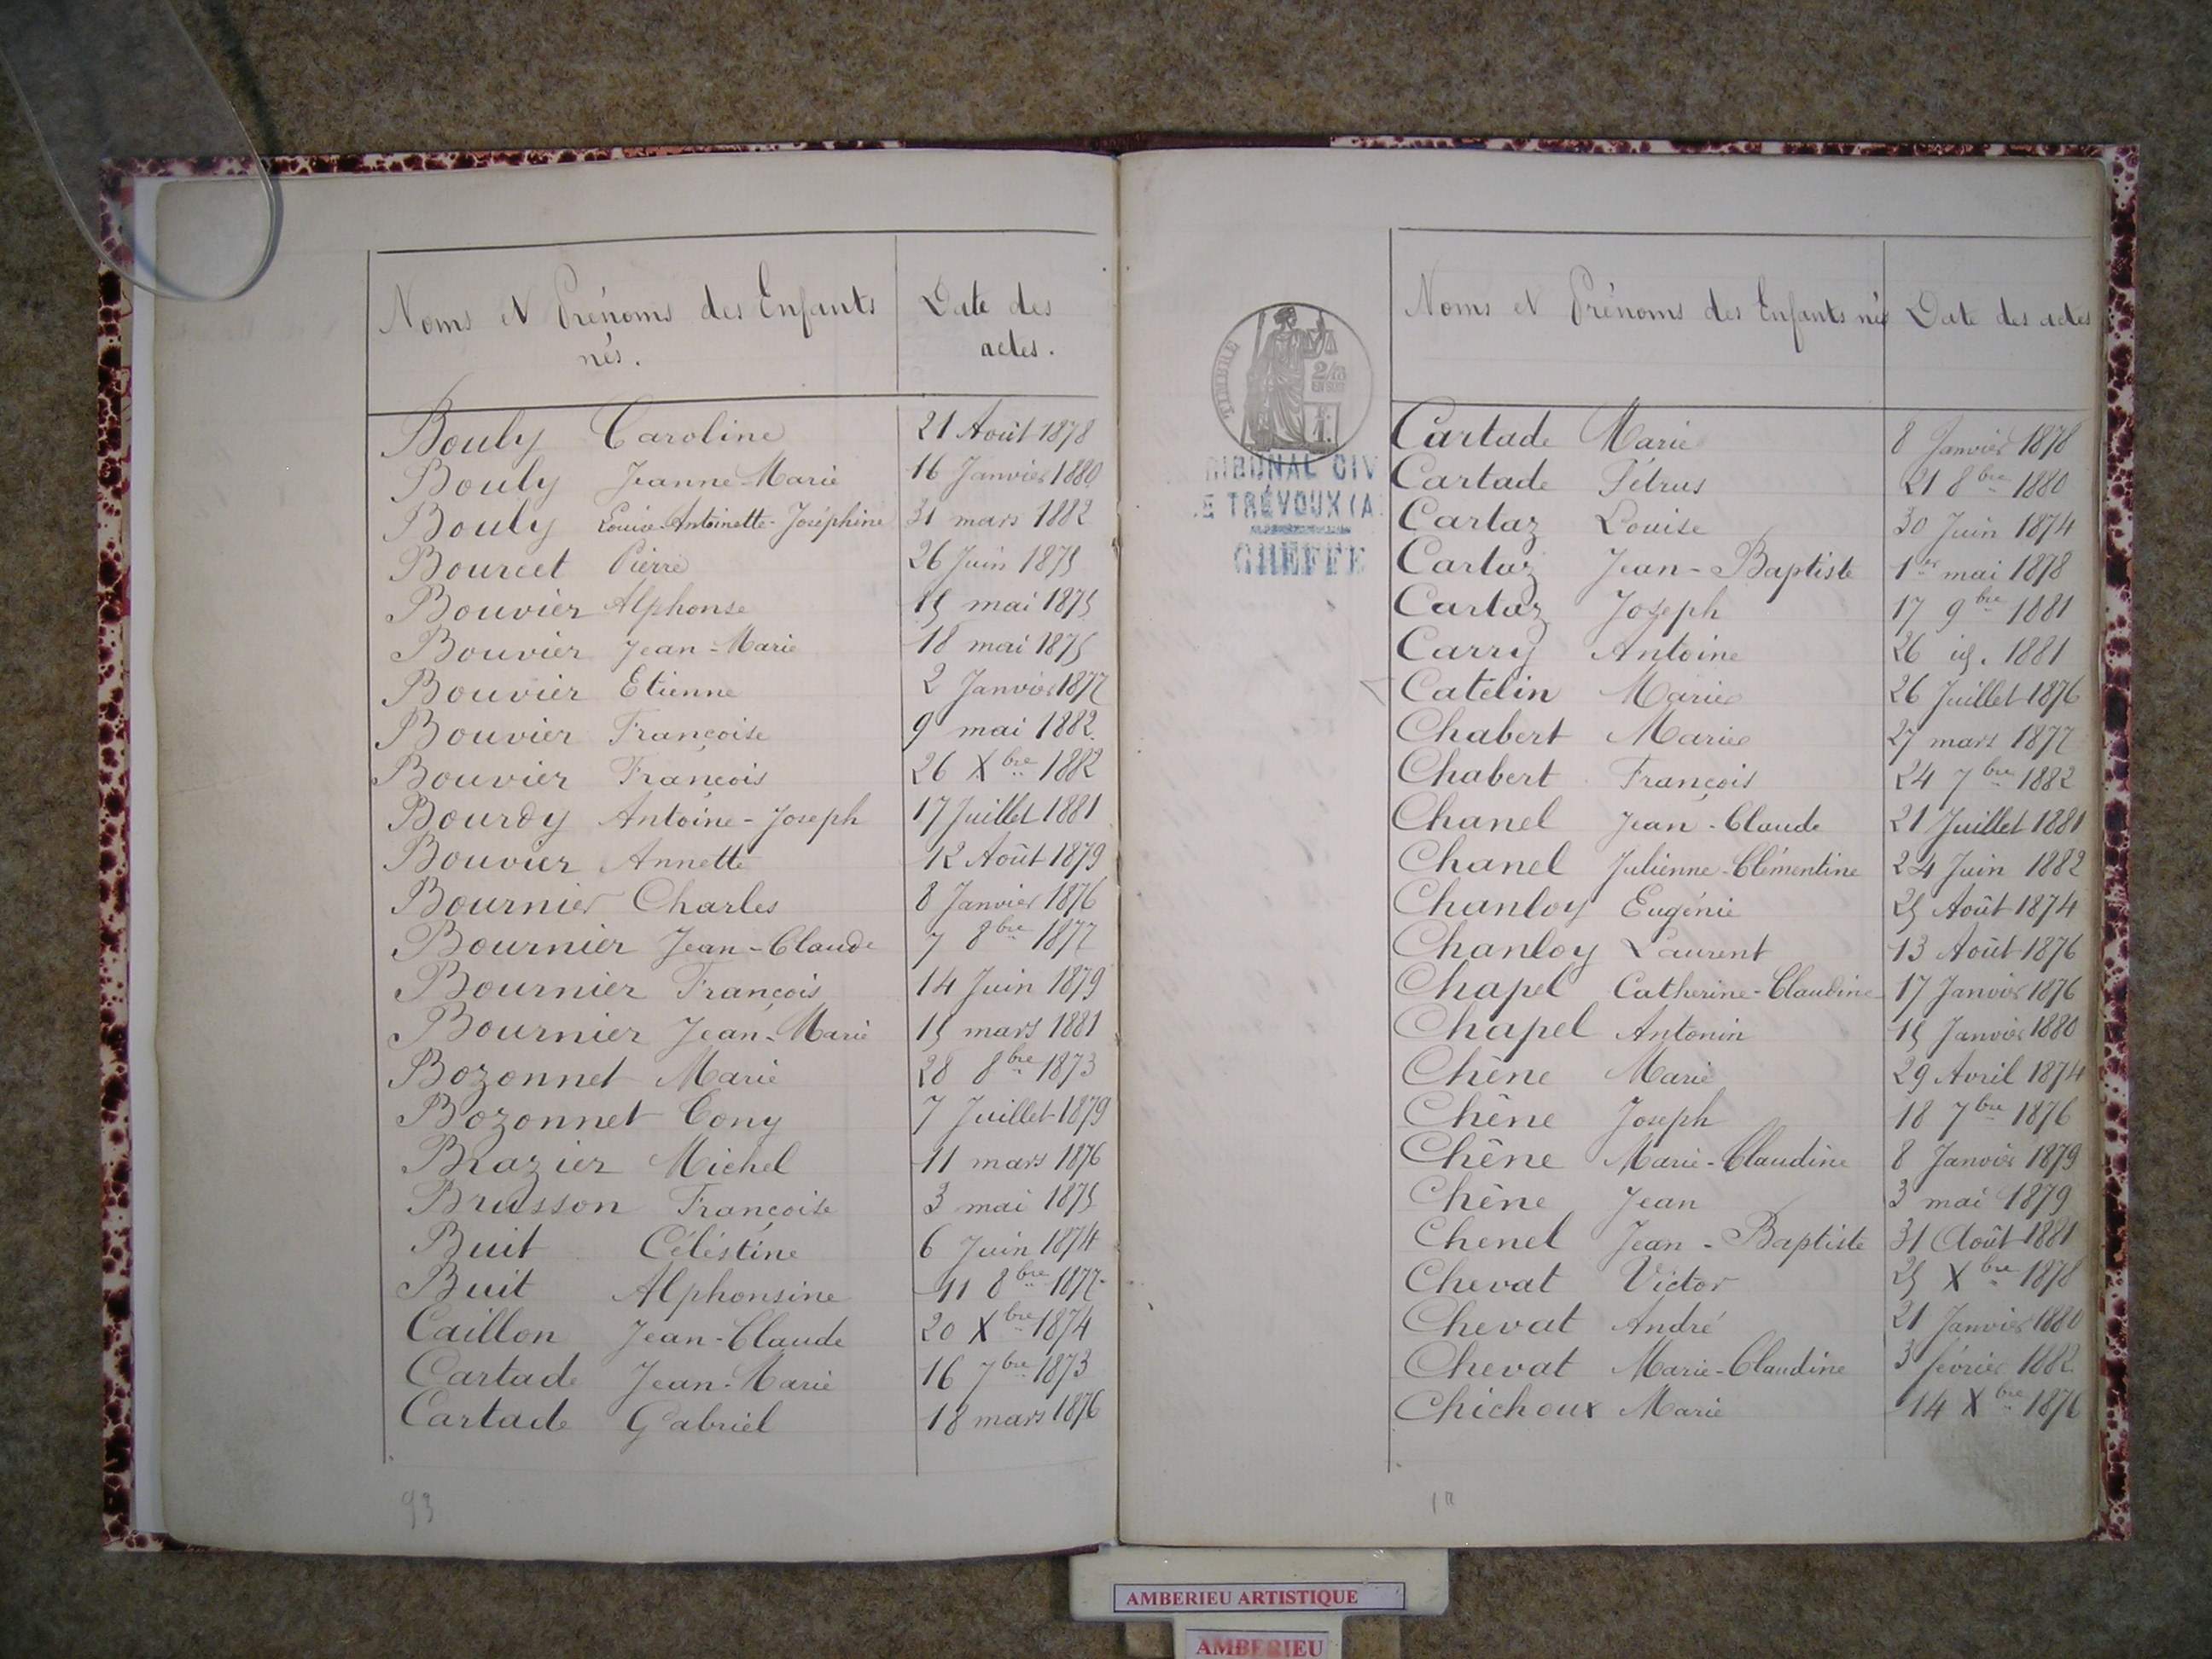 Noms et Prénoms des Enfants
nés.
Date des
actes.
Bouly Caroline 21 Août 1878
Bouly Jeanne-Marie 16 Janvier 1880
Bouly Louise-Antoinette-Joséphine 31 mars 1882
Bourcet Pierre 26 Juin 1875
Bouvier Alphonse 15 mai 1875
Bouvier Jean-Marie 18 mai 1875
Bouvier Etienne 2 Janvier 1877
Bouvier Françoise 9 mai 1882
Bouvier François 26 Xbre 1882
Bourdy Antoine-Joseph 17 Juillet 1881
Bouvier Annette 12 Août 1879
Bournier Charles 8 Janvier 1876
Bournier Jean-Claude 7 8bre 1877
Bournier François 14 Juin 1879
Bournier Jean-Marie 15 mars 1881
Bozonnet Marie 28 8bre 1873
Bozonnet Tony 7 Juillet 1879
Brazier Michel 11 mars 1876
Brusson Françoise 3 mai 1875
Buit Céléstine 6 Juin 1874
Buit Alphonsine 11 8bre 1877
Caillon Jean-Claude 20 Xbre 1874
Cartade Jean-Marie 16 7bre 1873
Cartade Gabriel 18 mars 1876
93
TIMBRE
2/10
EN SUS
RIBUNAL CIV
E TRÉVOUX (A
GREFFE
Noms et Prénoms des Enfants nés Date des actes
Cartade Marie 8 Janvier 1878
Cartade Pétrus 21 8bre 1880
Cartaz Louise 30 Juin 1874
Cartaz Jean-Baptiste 1er mai 1878
Cartaz Joseph 17 9bre 1881
Carry Antoine 26 id. 1881
Catelin Marie 26 Juillet 1876
Chabert Marie 27 mars 1877
Chabert François 24 7bre 1882
Chanel Jean-Claude 21 Juillet 1881
Chanel Julienne-Clémentine 24 Juin 1882
Chanloy Eugénie 25 Août 1874
Chanloy Laurent 13 Août 1876
Chapel Catherine-Claudine 17 Janvier 1876
Chapel Antonin 15 Janvier 1880
Chêne Marie 29 Avril 1874
Chêne Joseph 18 7bre 1876
Chêne Marie-Claudine 8 Janvier 1879
Chêne Jean 3 mai 1879
Chenel Jean-Baptiste 31 Août 1881
Chevat Victor 25 Xbre 1878
Chevat André 21 Janvier 1880
Chevat Marie-Claudine 3 février 1882
Chichoux Marie 14 Xbre 1876
AMBERIEU ARTISTIQUE
AMBERIEU